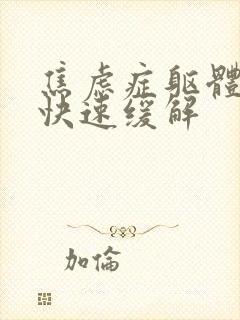 焦虑症躯體
快速缓解
加倫